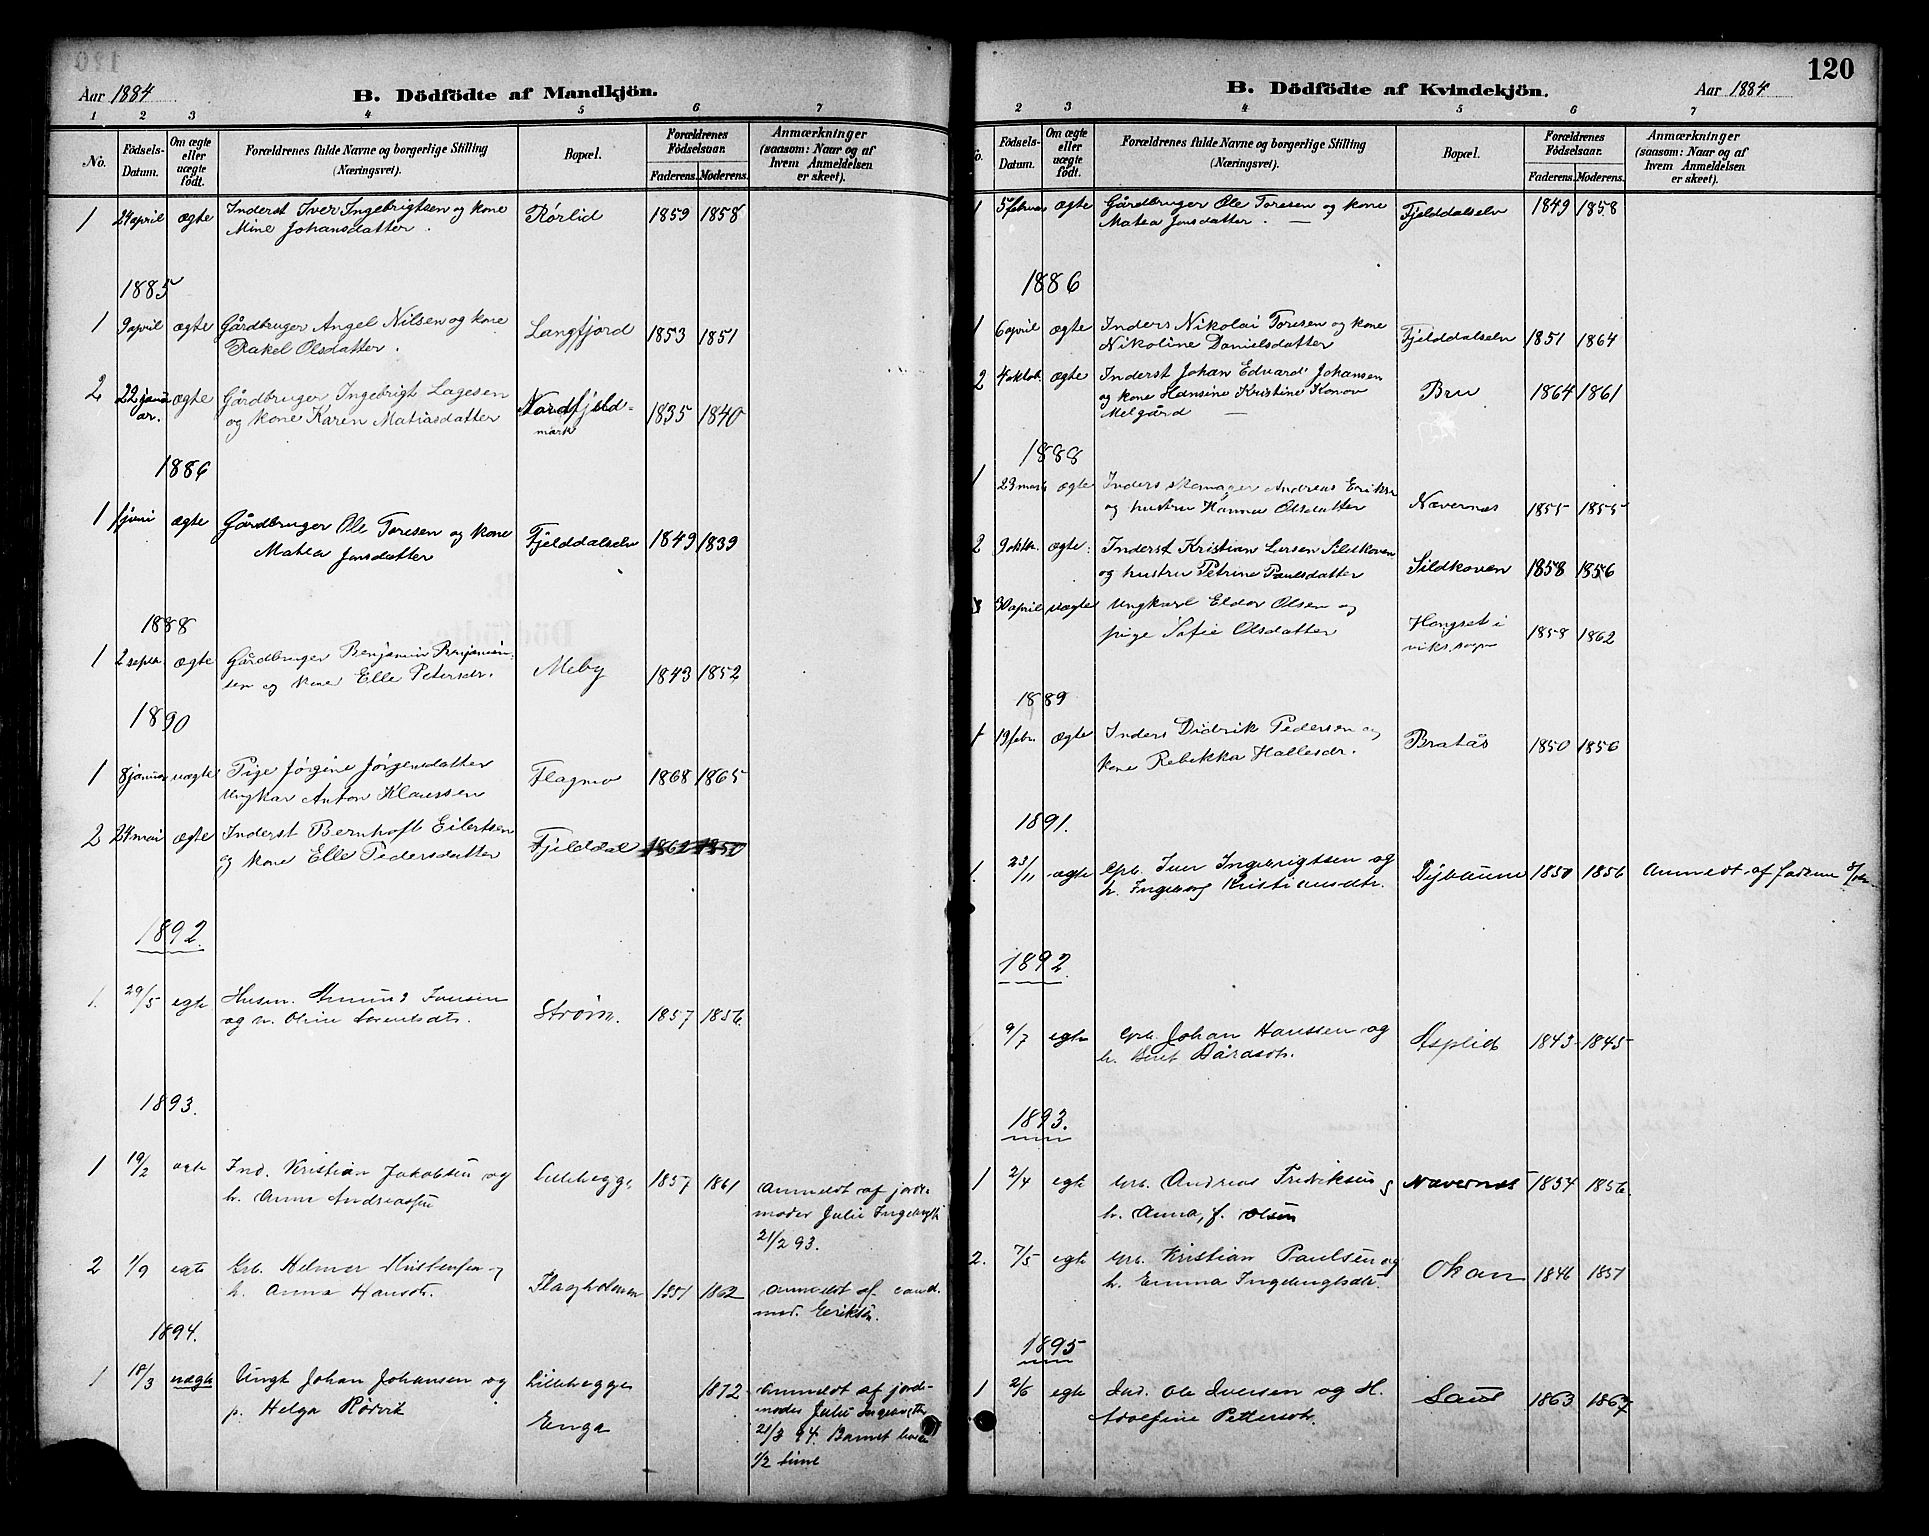 Aar 1884
B. Dödfödte af Mandkjön.
1 2 3 4 5 6 7
No.
Födsels-Datum.
Om ægte eller uægte födt.
Forældrenes fulde Navne og borgerlige Stilling (Næringsvei).
Bopæl.
Forældrenes Födselsaar.
Faderens. Moderens.
Anmærkninger (saasom: Naar og af hvem Anmeldelsen er skeet).
1 24 april ægte Inderst Iver Ingebrigtsen og kone Rörlid 1859 1858
Mine Johansdatter.
1885
1 9 april ægte Gårdbruger Angel Nilsen og kone Langfjord 1853 1851
Rakel Olsdatter.
2 22 januar. ægte Gårdbruger Ingebrigt Lagesen Nordfjeld- 1835 1840
og kone Karen Matiasdatter mark
1886
1 juni ægte Gårdbruger Ole Toresen og kone Fjelddalselv 1849 1839
Matea Jonsdatter
1888
1 2 septbr. ægte Gårdbruger Benjamin Benjamin- Meby 1843 1852
sen og kone Elle Petersdr.
1890
1 8 januar uægte Pige Jörgine Jörgensdatter Flagmo 1868 1865
Ungkar Anton Klaussen
2 24 mai ægte Inderst Bernhoft Eilertsen Fjelddal 1862 1850
og kone Elle Pedersdatter
1892.
1. 29/5 egte Husm. Amund Jonsen Strøm. 1857 1856.
og h. Oline Lorentsdtr.
1893.
1 19/2 egte Ind. Kristian Jakobsen og Lillehegge 1857 1861 Anmeldt af jorde-
h. Anna Andreassen moder Julie Ingebrigts
21/2 93.
2 1/9 egte Grb. Helmer Kristensen og Flagholmen 1851 1862 Anmeldt af cand.
h. Anna Hansdtr. med. Eriksen.
1894.
1 18/3 uægte Ungk Johan Johansen og Lillehegge 1872 Anmeldt af jord-
p. Helga Rörvik Enga moder Julie
21/3 94. Barnet
1/2 time
120
B. Dödfödte af Kvindekjön.
Aar 1884
2 3 4 5 6 7
Födsels-Datum.
Om ægte eller uægte födt.
Forældrenes fulde Navne og borgerlige Stilling (Næringsvei).
Bopæl.
Forældrenes Födselsaar.
Faderens. Moderens.
Anmærkninger (saasom: Naar og af hvem Anmeldelsen er skeet).
1 5 februar ægte Gårdbruger Ole Toresen og kone Fjelddalselv 1849 1858
Matea Jonsdatter. —
1886
1 6 april ægte Inders Nikolai Toresen og kone Fjelddalselv 1851 1864
Nikoline Danielsdatter
2 4 oktob. ægte Inderst Johan Edvard Johansen Bru 1864 1861
og kone Hansine Kristine Konov
Melgård —
1888
1 29 mars ægte Inders skomager Andreas Eriksen Nævernes 1855 1855
og hustru Hanna Olsdatter
2 9 oktbr. ægte: Inderst Kristian Larsen Sildkoven Sildkoven 1858 1856
og hustru Petrine Paulsdatter
3 30 april uægte Ungkarl Eldor Olsen og Hongset i 1858 1862
pige Sofie Olsdatter viks sogn
1889
1 19 febr. ægte Inders Didrik Pedersen og Bratås 1850 1850
kone Rebekka Hallesdr.
1891.
1. 23/11 ægte Grb. Iver Ingebrigtsen og 1850 1856 Anmeldt af faderen
h. Ingeborg Kristiansdtr.
1892.
9/7 egte Grb. Johan Hanssen og Asplid 1843 1845
h. Beret Bårdsdtr.
1893.
1 2/4 egte Grb. Andreas Fredriksen og Nævernes 1854 1856.
h. Anna, f. Olsen
2. 7/5 egte Grb. Kristian Paulsen og Okan 1846 1851
h. Emma Ingebrigtsdtr
1895
1 2/6 egte Ind. Ole Iversen og H. Saus 1863 1867
Adolfine Pettersdtr.